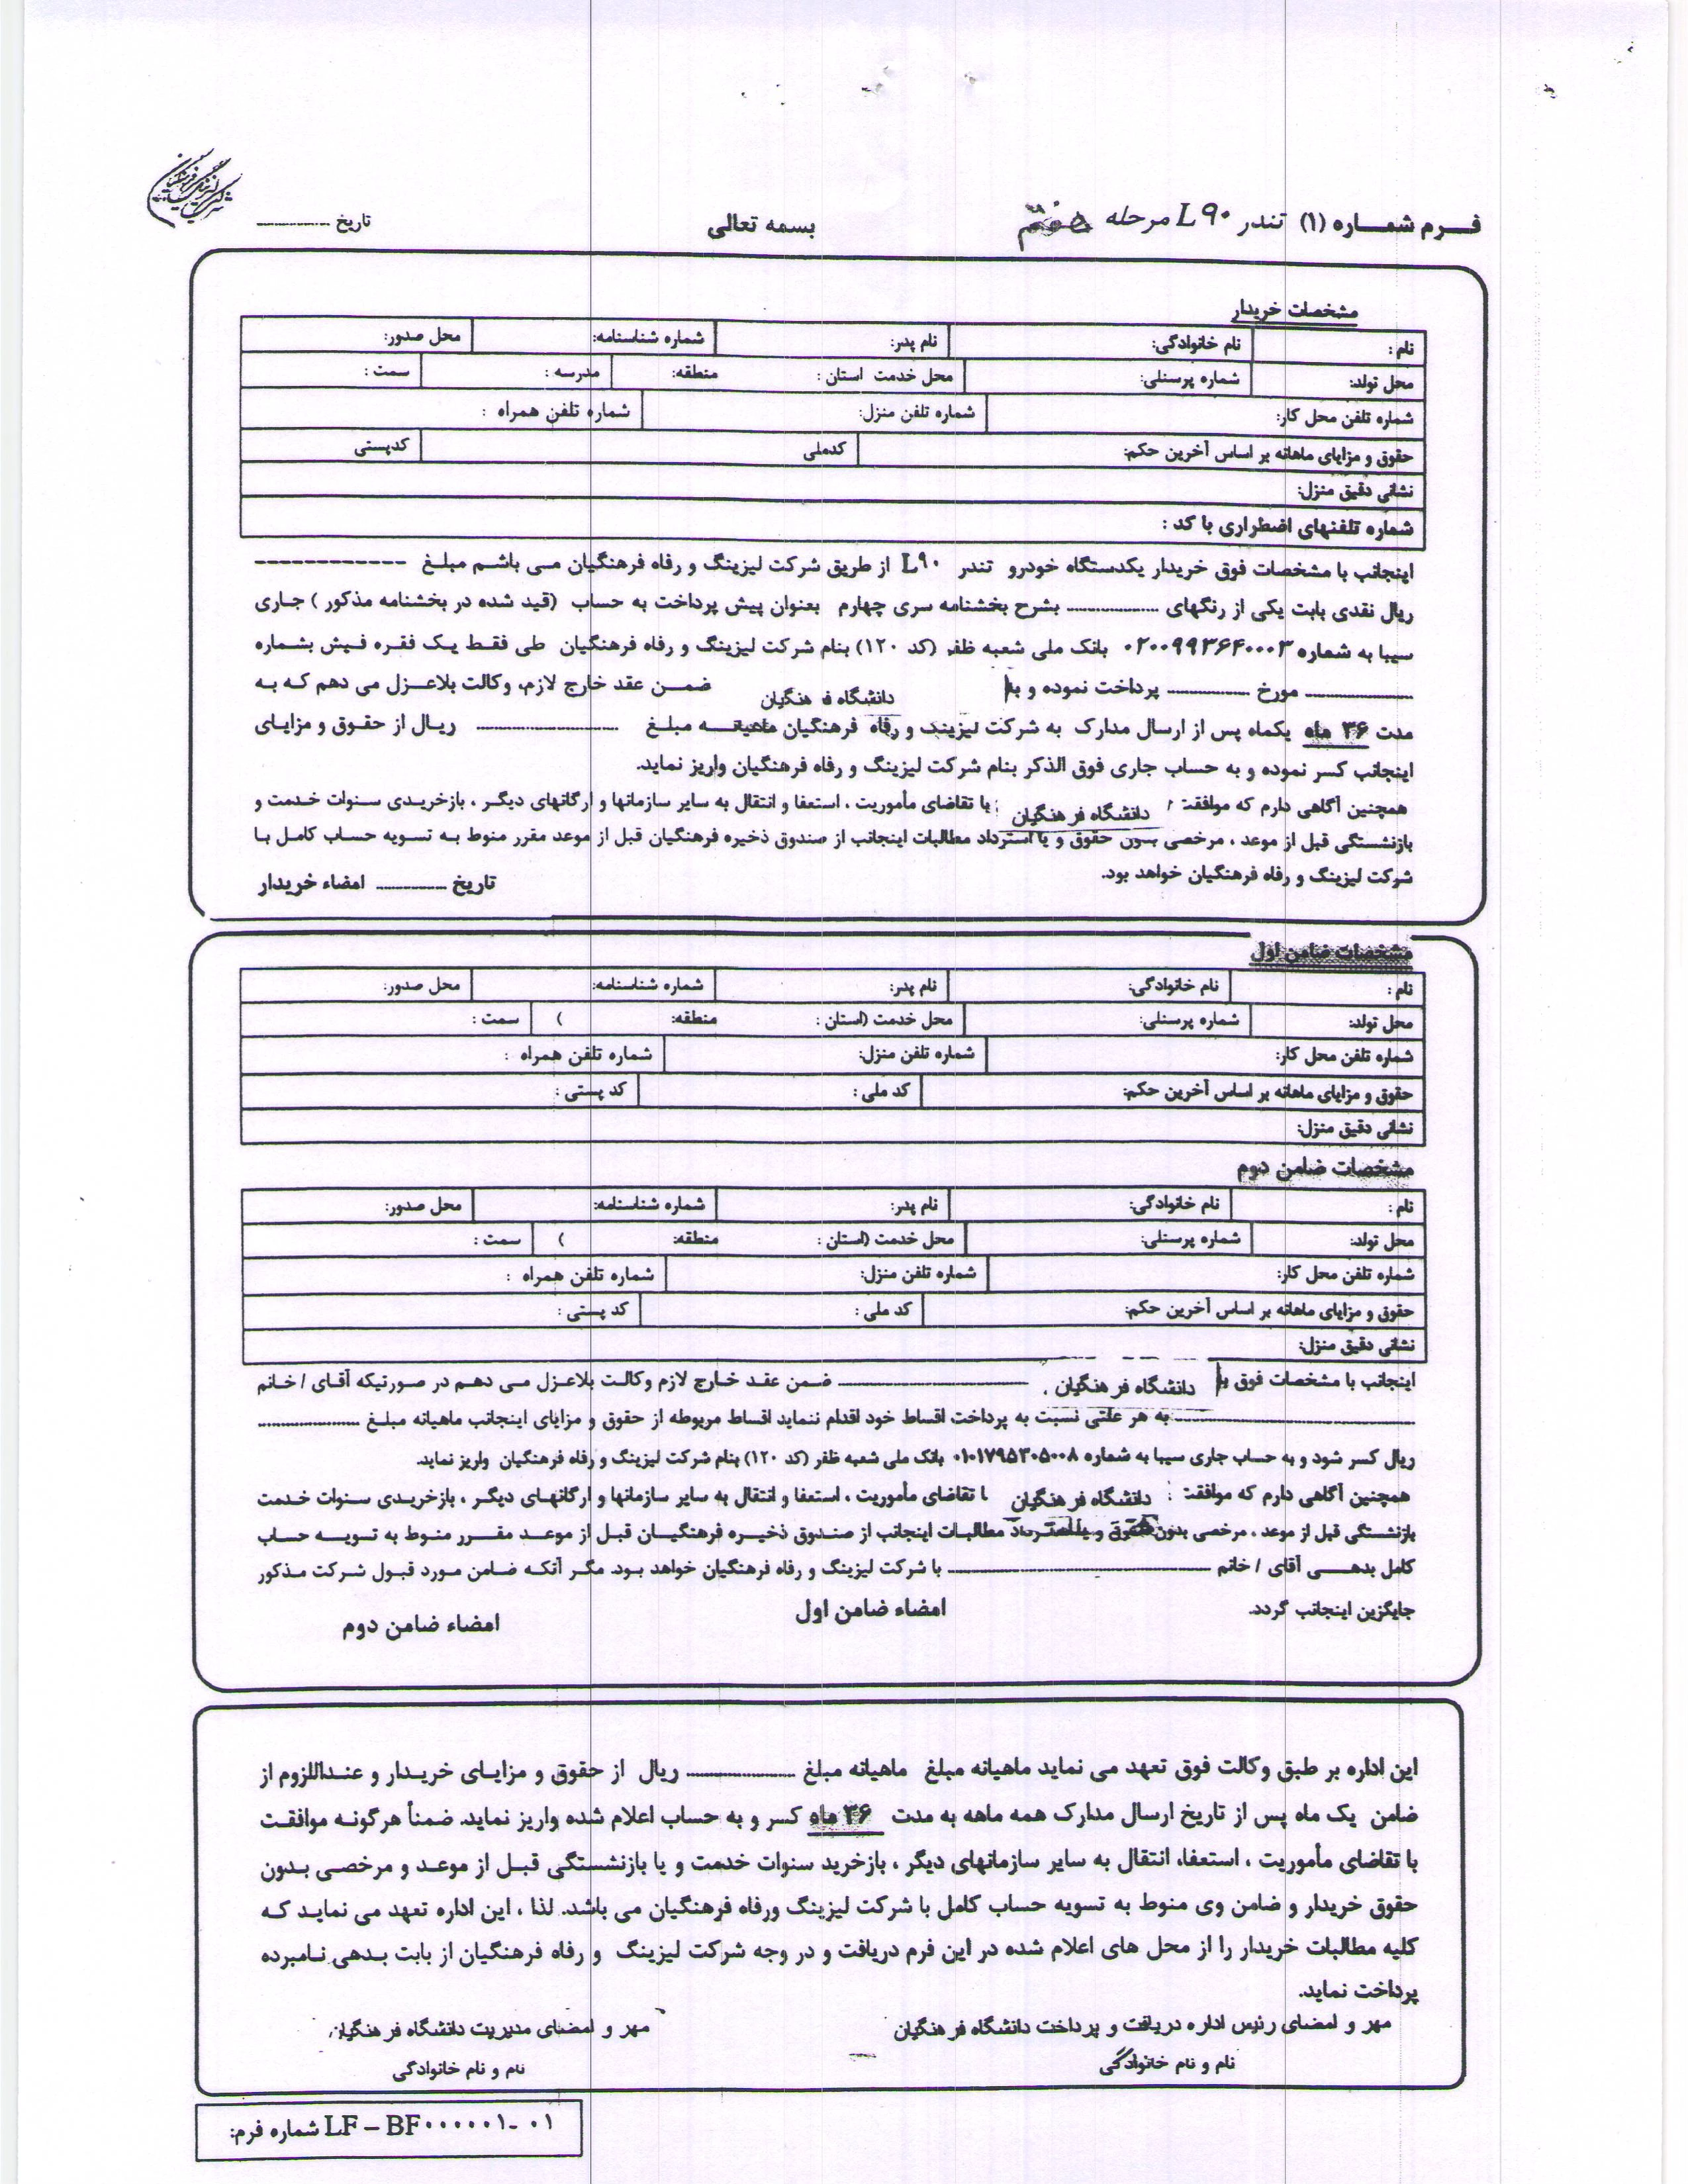 شرکت لیزینگ فرهنگیان
فرم شماره (۱) تندر L۹۰ مرحله هفتم
بسمه تعالی
تاریخ ................
مشخصات خریدار
نام : نام خانوادگی: نام پدر: شماره شناسنامه: محل صدور:
محل تولد: شماره پرسنلی: محل خدمت استان : منطقه: مدرسه : سمت :
شماره تلفن محل کار: شماره تلفن منزل: شماره تلفن همراه :
حقوق و مزایای ماهانه بر اساس آخرین حکم: کدملی کدپستی
نشانی دقیق منزل:
شماره تلفنهای اضطراری با کد :
اینجانب با مشخصات فوق خریدار یکدستگاه خودرو تندر L۹۰ از طریق شرکت لیزینگ و رفاه فرهنگیان می باشم مبلغ ------------
ریال نقدی بابت یکی از رنگهای .................. بشرح بخشنامه سری چهارم بعنوان پیش پرداخت به حساب (قید شده در بخشنامه مذکور ) جاری
سیبا به شماره ۰۲۰۰۹۹۳۶۴۰۰۰۳ بانک ملی شعبه ظفر (کد ۱۲۰) بنام شرکت لیزینگ و رفاه فرهنگیان طی فقط یک فقره فیش بشماره
.................... مورخ ................ پرداخت نموده و به دانشگاه فرهنگیان ضمن عقد خارج لازم، وکالت بلاعزل می دهم که به
مدت ۳۶ ماه یکماه پس از ارسال مدارک به شرکت لیزینگ و رفاه فرهنگیان ماهیانه مبلغ .......................... ریال از حقوق و مزایای
اینجانب کسر نموده و به حساب جاری فوق الذکر بنام شرکت لیزینگ و رفاه فرهنگیان واریز نماید.
همچنین آگاهی دارم که موافقت دانشگاه فرهنگیان با تقاضای مأموریت ، استعفا و انتقال به سایر سازمانها و ارگانهای دیگر ، بازخریدی سنوات خدمت و
بازنشستگی قبل از موعد ، مرخصی بدون حقوق و یا استرداد مطالبات اینجانب از صندوق ذخیره فرهنگیان قبل از موعد مقرر منوط به تسویه حساب کامل با
شرکت لیزینگ و رفاه فرهنگیان خواهد بود.
تاریخ .............. امضاء خریدار
مشخصات ضامن اول
نام : نام خانوادگی: نام پدر: شماره شناسنامه: محل صدور:
محل تولد: شماره پرسنلی: محل خدمت (استان : منطقه: ) سمت :
شماره تلفن محل کار: شماره تلفن منزل: شماره تلفن همراه :
حقوق و مزایای ماهانه بر اساس آخرین حکم: کد ملی : کد پستی :
نشانی دقیق منزل:
مشخصات ضامن دوم
نام : نام خانوادگی: نام پدر: شماره شناسنامه: محل صدور:
محل تولد: شماره پرسنلی: محل خدمت (استان : منطقه: ) سمت :
شماره تلفن محل کار: شماره تلفن منزل: شماره تلفن همراه :
حقوق و مزایای ماهانه بر اساس آخرین حکم: کد ملی : کد پستی :
نشانی دقیق منزل:
اینجانب با مشخصات فوق به دانشگاه فرهنگیان .................................... ضمن عقد خارج لازم وکالت بلاعزل می دهم در صورتیکه آقای / خانم
.................................... به هر علتی نسبت به پرداخت اقساط خود اقدام ننماید اقساط مربوطه از حقوق و مزایای اینجانب ماهیانه مبلغ ....................
ریال کسر شود و به حساب جاری سیبا به شماره ۰۱۰۱۷۹۵۳۰۵۰۰۸ بانک ملی شعبه ظفر (کد ۱۲۰) بنام شرکت لیزینگ و رفاه فرهنگیان واریز نماید.
همچنین آگاهی دارم که موافقت دانشگاه فرهنگیان با تقاضای مأموریت ، استعفا و انتقال به سایر سازمانها و ارگانهای دیگر ، بازخریدی سنوات خدمت
بازنشستگی قبل از موعد ، مرخصی بدون حقوق و یا استرداد مطالبات اینجانب از صندوق ذخیره فرهنگیان قبل از موعد مقرر منوط به تسویه حساب
کامل بدهی آقای / خانم .................................... با شرکت لیزینگ و رفاه فرهنگیان خواهد بود. مگر آنکه ضامن مورد قبول شرکت مذکور
جایگزین اینجانب گردد.
امضاء ضامن اول
امضاء ضامن دوم
این اداره بر طبق وکالت فوق تعهد می نماید ماهیانه مبلغ ماهیانه مبلغ .................. ریال از حقوق و مزایای خریدار و عنداللزوم از
ضامن یک ماه پس از تاریخ ارسال مدارک همه ماهه به مدت ۳۶ ماه کسر و به حساب اعلام شده واریز نماید. ضمناً هرگونه موافقت
با تقاضای مأموریت ، استعفا، انتقال به سایر سازمانهای دیگر ، بازخرید سنوات خدمت و یا بازنشستگی قبل از موعد و مرخصی بدون
حقوق خریدار و ضامن وی منوط به تسویه حساب کامل با شرکت لیزینگ ورفاه فرهنگیان می باشد. لذا ، این اداره تعهد می نماید که
کلیه مطالبات خریدار را از محل های اعلام شده در این فرم دریافت و در وجه شرکت لیزینگ و رفاه فرهنگیان از بابت بدهی نامبرده
پرداخت نماید.
مهر و امضای رئیس اداره دریافت و پرداخت دانشگاه فرهنگیان
مهر و امضای مدیریت دانشگاه فرهنگیان
نام و نام خانوادگی
نام و نام خانوادگی
شماره فرم: LF – BF۰۰۰۰۰۱-۰۱